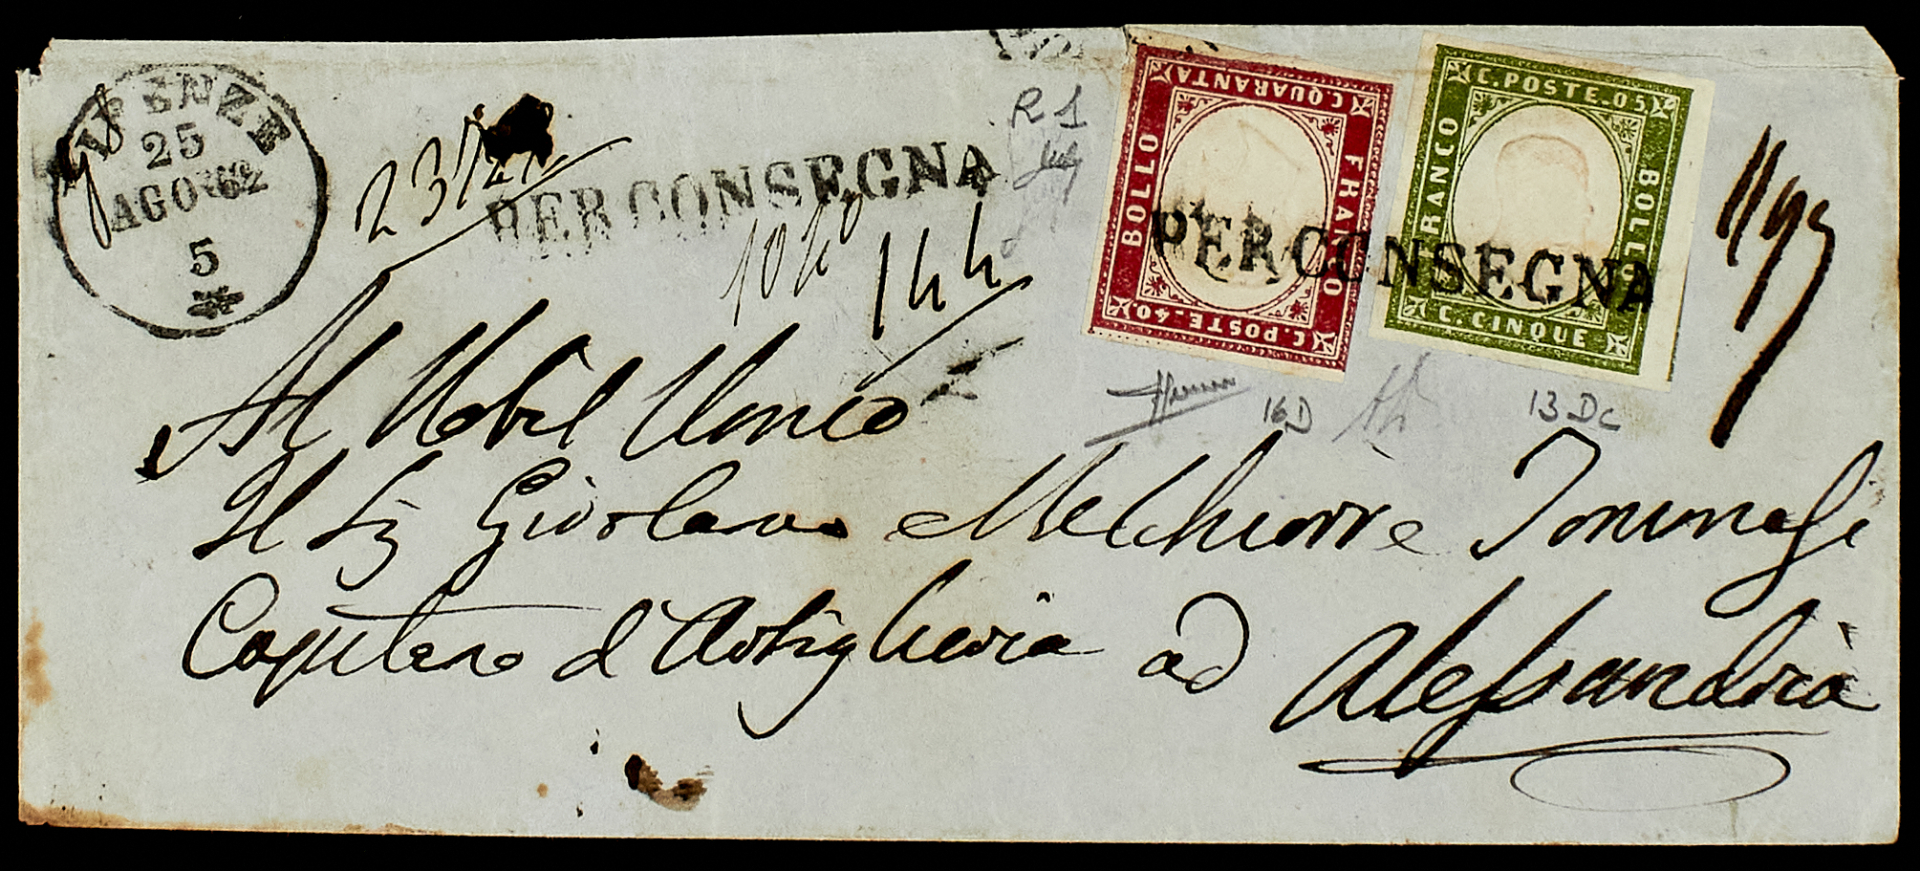 FIRENZE
25
AGO 62
5
PER CONSEGNA
144
R1
C. QUARANTA
BOLLO
FRANCO
C. POSTE. 40
C. POSTE. 05
FRANCO
BOLLO
C. CINQUE
PER CONSEGNA
16D
13Dc
Al Nobil Uomo
Il Sig Girolamo Melchiorre Tommasi
Capitano d'Artiglieria ad Alessandria